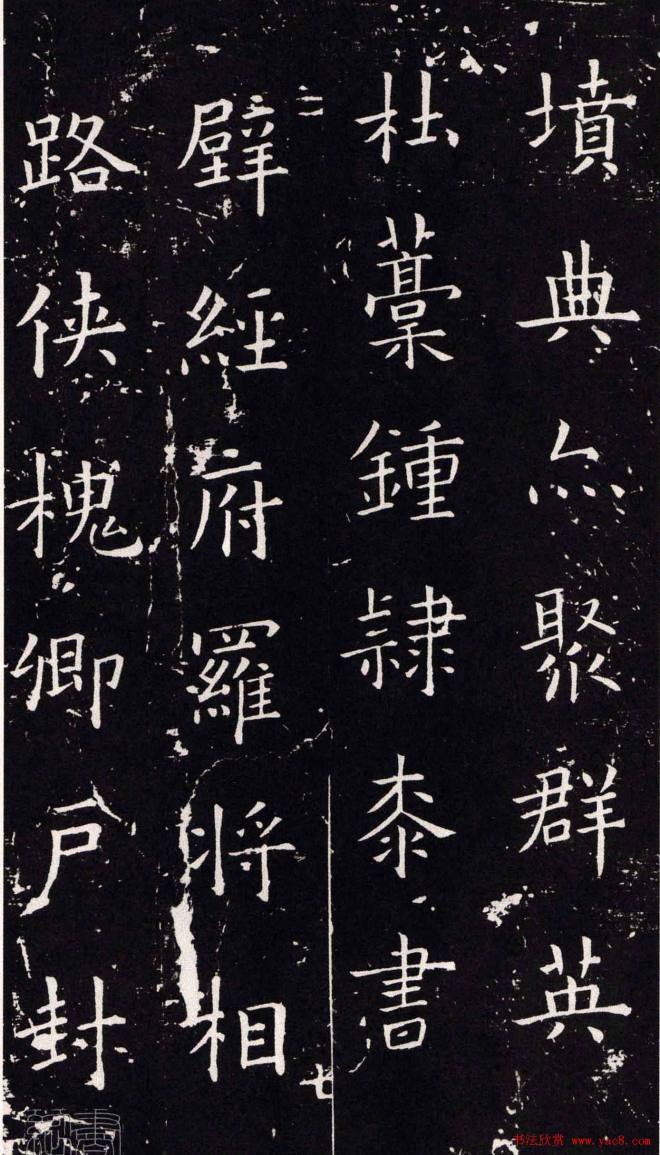 墳典亦聚群英
杜藁鍾隸桼書
壁經府羅將相
路俠槐卿户封
二
七
书法欣赏 www.yac8.com